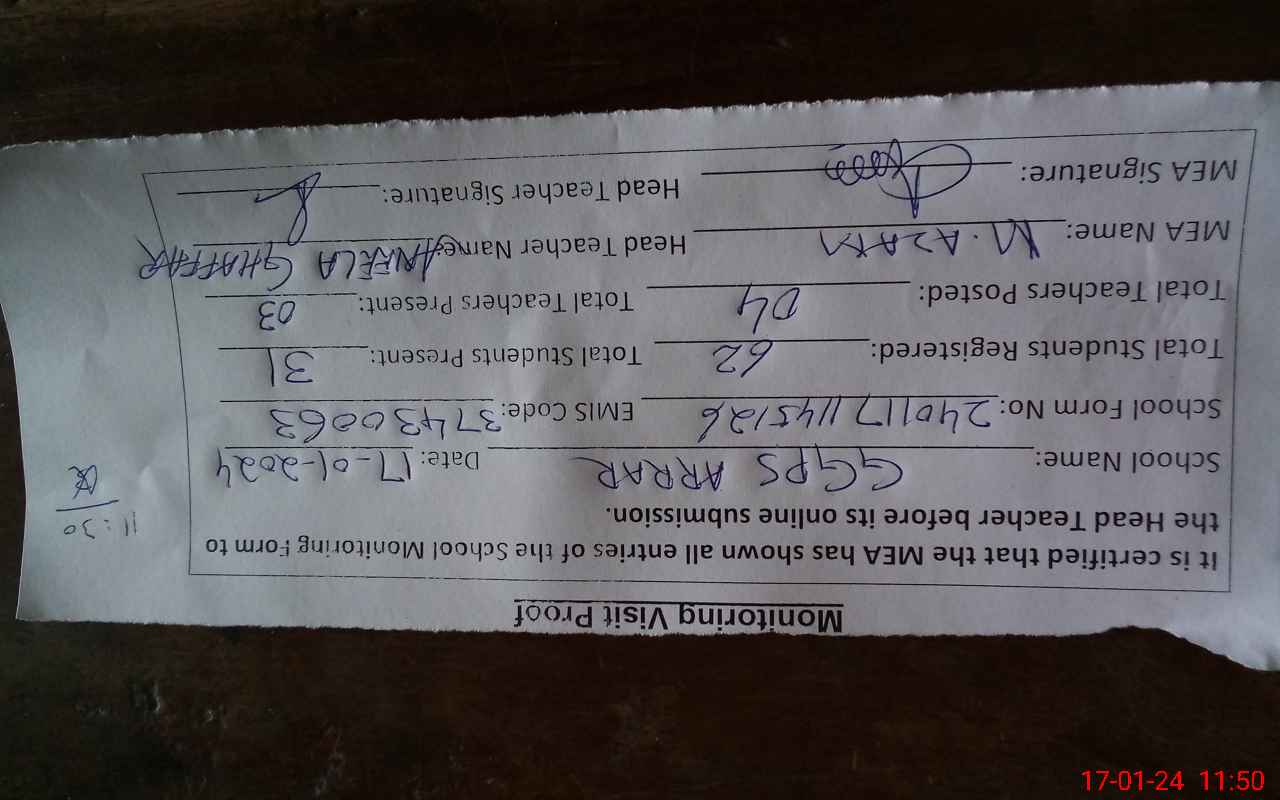 Monitoring Visit Proof
It is certified that the MEA has shown all entries of the School Monitoring Form to
the Head Teacher before its online submission.
School Name: GGPS ARRAR Date: 17-01-2024
11:30
School Form No: 2401171145126 EMIS Code: 37430063
Total Students Registered: 62 Total Students Present: 31
Total Teachers Posted: 04 Total Teachers Present: 03
MEA Name: M. AZAM Head Teacher Name: ANEELA GHAFFAR
MEA Signature: Head Teacher Signature:
17-01-24 11:50